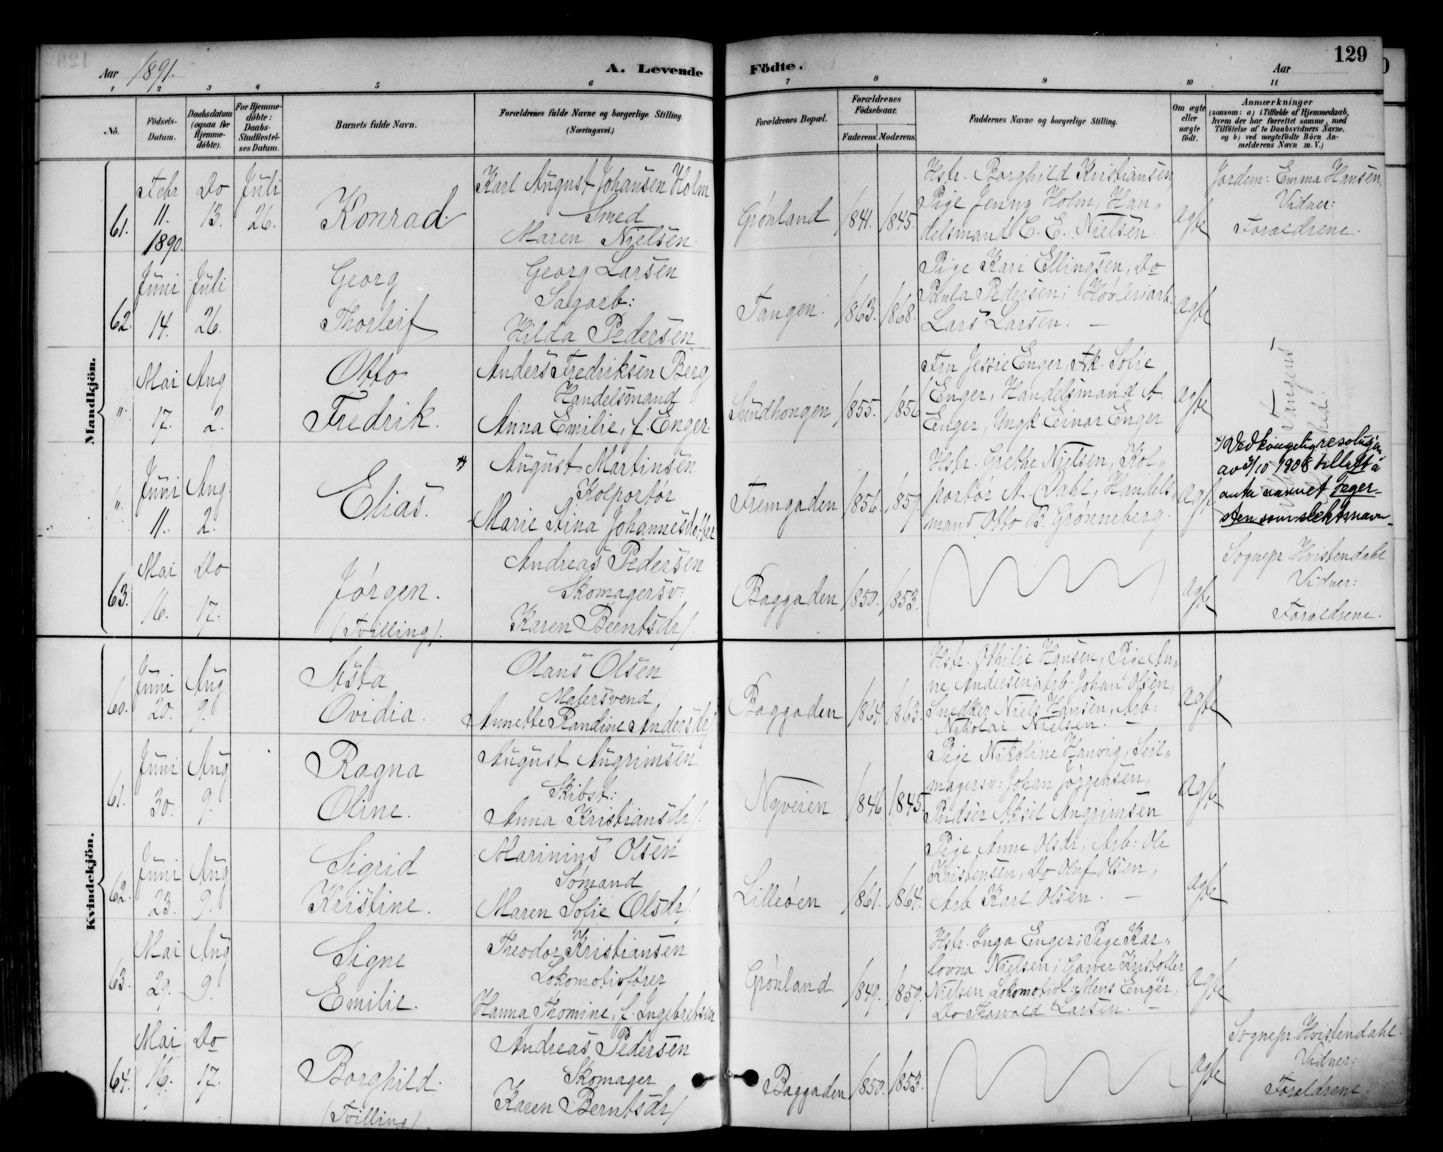 129
Aar 1891.
A. Levende Födte.
Aar
1 2 3 4 5 6 7 8 9 10 11
No.
Födsels-Datum.
Daabsdatum (ogsaa for Hjemmedöbte).
For Hjemmedöbte: Daabs-Stadfæstelses Datum.
Barnets fulde Navn.
Forældrenes fulde Navne og borgerlige Stilling (Næringsvei.)
Forældrenes Bopæl.
Forældrenes Födselsaar.
Faderens. Moderens.
Faddernes Navne og borgerlige Stilling.
Om ægte eller uægte födt.
Anmærkninger
(saasom: a) i Tilfælde af Hjemmedaab, hvem der har forrettet samme, med Tilföielse af to Daabsvidners Navne, og b) ved uægtefödte Börn Anmelderens Navn m. V.)
Mandkjön.
61.
Febr 11. 1890
Do 13.
Juli 26.
Konrad
Karl August Johansen Holm
Smed
Maren Nielsen
Grønland
1841. 1845.
Hstr. Borghild Kristiansen
Pige Jenny Holm, Han-
delsmand C. E. Nielsen.
ægte
Jordem: Emma Hansen
Vidner:
Forældrene.
62.
Juni 14.
Juli 26.
Georg
Thorleif
Georg Larsen
Sagarb:
Hilda Pedersen
Tangen.
1863. 1868.
Pige Kari Ellingsen, Do
Paula Pedersen; Høvleriarb
Lars Larsen. —
ægte
"
Mai 17.
Aug 2.
Otto
Fredrik.
Anders Fredriksen Berg
Handelsmand
Anna Emilie, f. Enger
Sundhougen
1855. 1856
Fru Jessie Enger, Frk. Sofie
Enger, Handelsmand A.
Enger, Ungk Einar Enger
ægte
Tangens
"
Juni 11.
Aug. 2.
Elias. *)
August Martinsen
Kolportør
Marie Stina Johannesdotter
Fremgaden
1856. 1857.
Hstr. Grethe Nielsen, Kol-
portør A. Dahl, Handels
mand Otto B. Grønneberg.
ægte
*) Ved kongelig resolusjon
av 3/10 1908 tillatt å
anta navnet
som slektsnavn.
63.
Mai 16.
Do 17.
Jørgen.
(Tvilling).
Andreas Pedersen
Skomagersv:
Karen Berntsdr.
Baggaden
1850. 1853.
ægte
Sognepr. Hvistendahl
Vidner:
Forældrene.
Kvindekjön.
60.
Juni 20.
Aug 9.
Asta
Ovidia.
Olaus Olsen
Malersvend
Annette Randine Andersdr.
Baggaden
1864. 1863.
Hstr. Othilie Hansen, Pige An-
ne Andersen, Arb. Johan Olsen,
Snedker Niels Hansen, Arb:
Nikolai Nielsen. —
ægte
61.
Juni 30.
Aug 9.
Ragna
Oline.
August Angrimsen
Skibst:
Anna Kristiansdr.
Nyveien
1846 1845.
Pige Nikoline Hanvig, Seil-
magersv: Johan Jørgensen,
Aksel Angrimsen
ægte
62.
Juni 23.
Aug 9.
Sigrid
Kristine.
Marinius Olsen
Sømand
Maren Sofie Olsdr.
Lilleøen
1861. 1864.
Pige Anne Olsdr, Arb: Ole
Kristensen, Do Oluf Olsen,
Arb Karl Olsen. —
ægte
63.
Mai 29.
Aug 9.
Signe
Emilie.
Theodor Kristiansen
Lokomotivfører
Hanna Thomine, f. Ingebretsen
Grønland
1849. 1859.
Hstr. Inga Enger; Pige Kar-
lovna Nielsen; Garver Kristoffer
Nielsen Lokomotivf: Jens Enger,
Do Thorvald Larsen. —
ægte
64.
Mai 16.
Do 17.
Borghild.
(Tvilling)
Andreas Pedersen
Skomager
Karen Berntsdr.
Baggaden
1850. 1853.
ægte
Sognepr. Hvistendahl.
Vidner:
Forældrene.